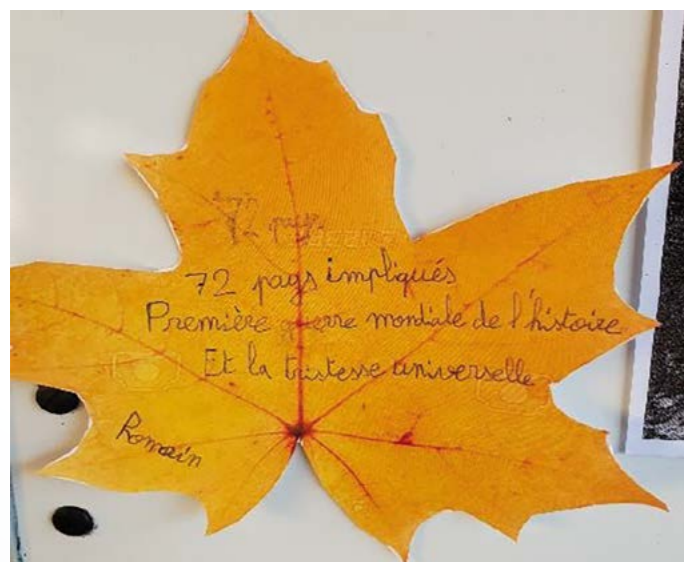 72 pays
72 pays impliqués
Première guerre mondiale de l'histoire
Et la tristesse universelle
Romain